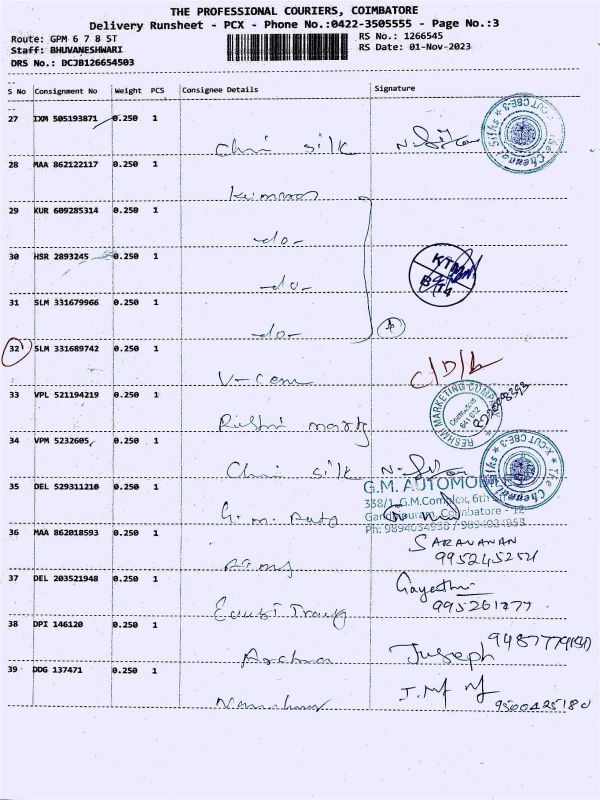 THE PROFESSIONAL COURIERS, COIMBATORE
Delivery Runsheet - PCX - Phone No.:0422-3505555 - Page No.:3
Route: GPM 6 7 8 ST
RS No.: 1266545
Staff: BHUVANESHWARI
RS Date: 01-Nov-2023
DRS No.: DCJB126654503
S No Consignment No Weight PCS Consignee Details Signature
27 IXM 505193871 0.250 1
silk
28 MAA 862122117 0.250 1
29 KUR 609285314 0.250 1
-do-
30 HSR 2893245 0.250 1
-do-
KTM
31 SLM 331679966 0.250 1
-do-
32 SLM 331689742 0.250 1
V-Com
C/D/L
33 VPL 521194219 0.250 1
RESHMI MARKETING COMPANY
Coimbatore
641 012
34 VPM 5232605 0.250 1
silk
The Chennai Silks
X-CUT CBE-3
35 DEL 529311210 0.250 1
G.M. Auto
G.M. AUTOMOBILES
338/1, G.M.Complex, 6th
Gandhipuram, Coimbatore - 12
Ph: 9894034958 /
36 MAA 862018593 0.250 1
SARAVANAN
9952452521
37 DEL 203521948 0.250 1
Gayathri
38 DPI 146120 0.250 1
Archna
Juseph
39 DDG 137471 0.250 1